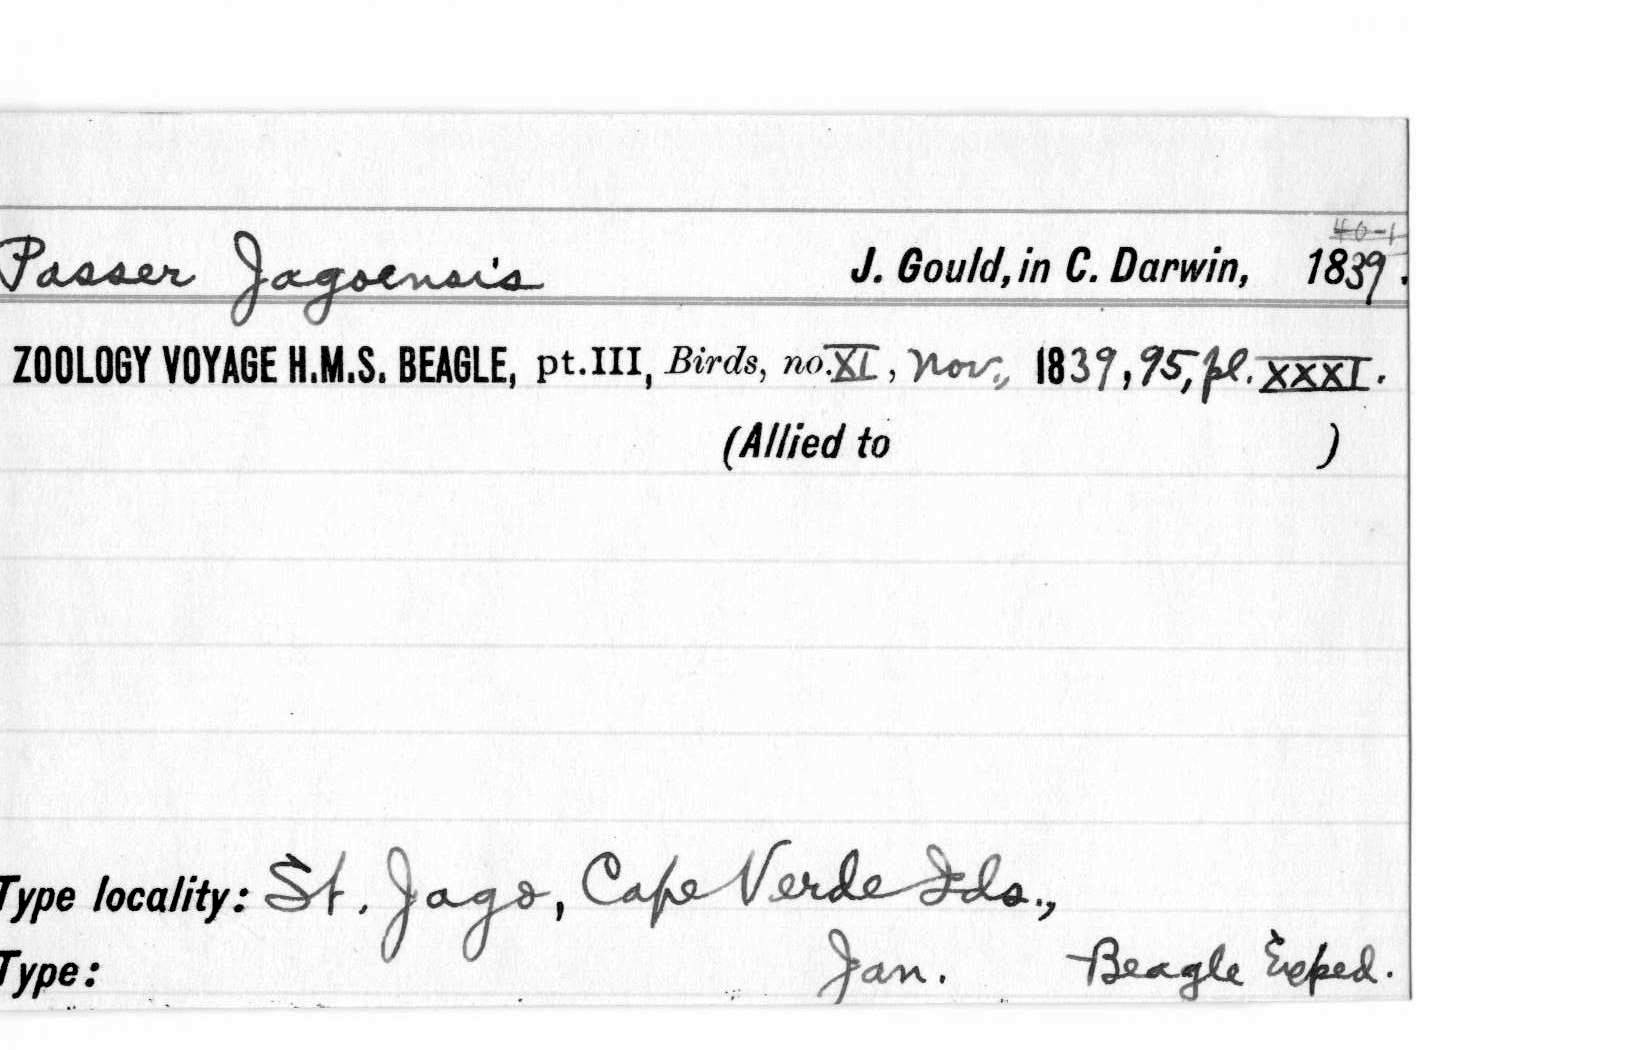 40-1
Passer Jagoensis J. Gould, in C. Darwin, 1839.
ZOOLOGY VOYAGE H.M.S. BEAGLE, pt. III, Birds, no. XI, Nov., 1839, 95, pl. XXXI.
(Allied to )
Type locality: St. Jago, Cape Verde Ids.,
Type: Jan. Beagle Exped.